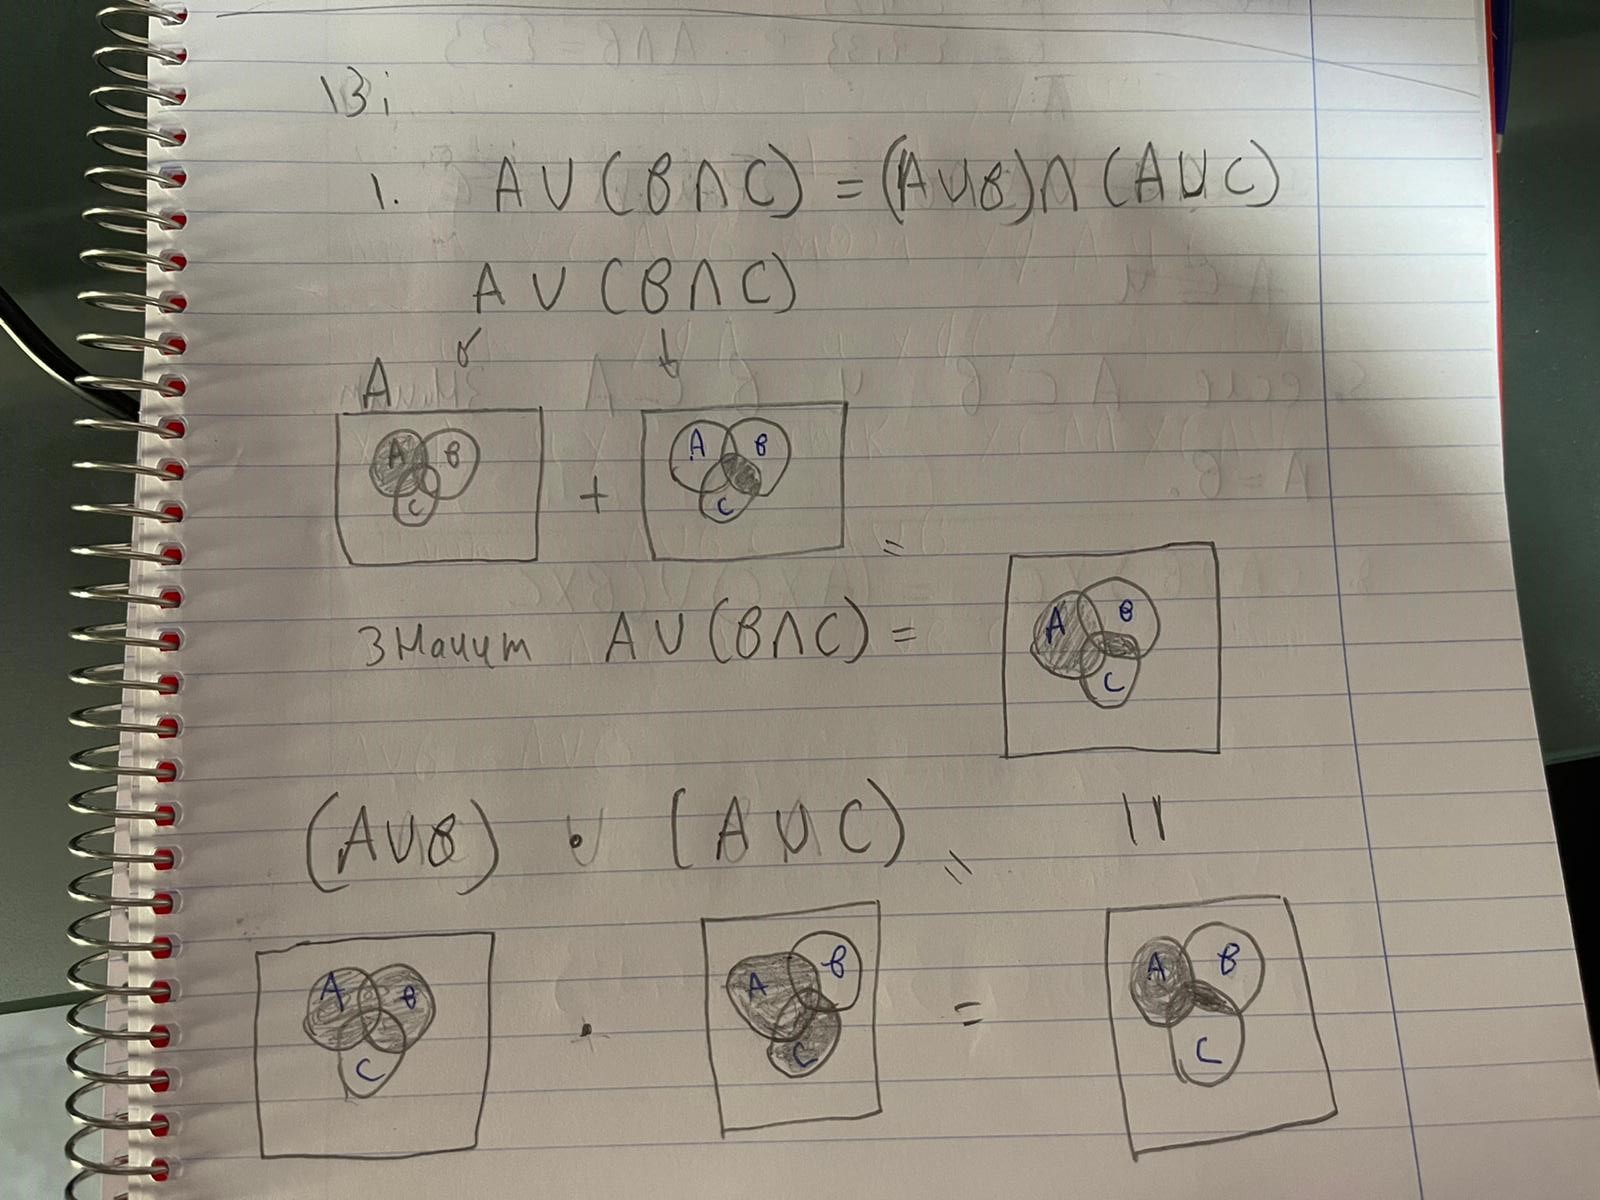 13;
1. A ∪ (B ∩ C) = (A ∪ B) ∩ (A ∪ C)
A ∪ (B ∩ C)
A
A B C
+
A B C
=
значит A ∪ (B ∩ C) =
A B C
(A ∪ B) • (A ∪ C) =
=
A B C
•
A B C
=
A B C